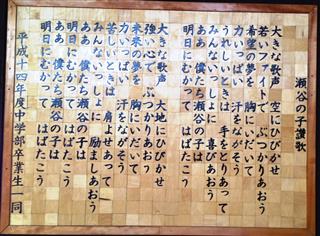 瀬谷の子讃歌
大きな歌声　空にひびかせ
若いファイトで　ぶつかりあおう
希望の夢を　胸にいだいて
力いっぱい　汗をながそう
うれしいときは　手をとりあって
みんないっしょに　喜びあおう
ああ　僕たち瀬谷の子は
明日にむかって　はばたこう
大きな歌声　大地にひびかせ
強い心で　ぶつかりあおう
未来の夢を　胸にいだいて
力いっぱい　汗をながそう
苦しいときは　肩よせあって
みんないっしょに　励ましあおう
ああ　僕たち瀬谷の子は
明日にむかって　はばたこう
ああ　僕たち瀬谷の子は
明日にむかって　はばたこう
平成十四年度中学部卒業生一同